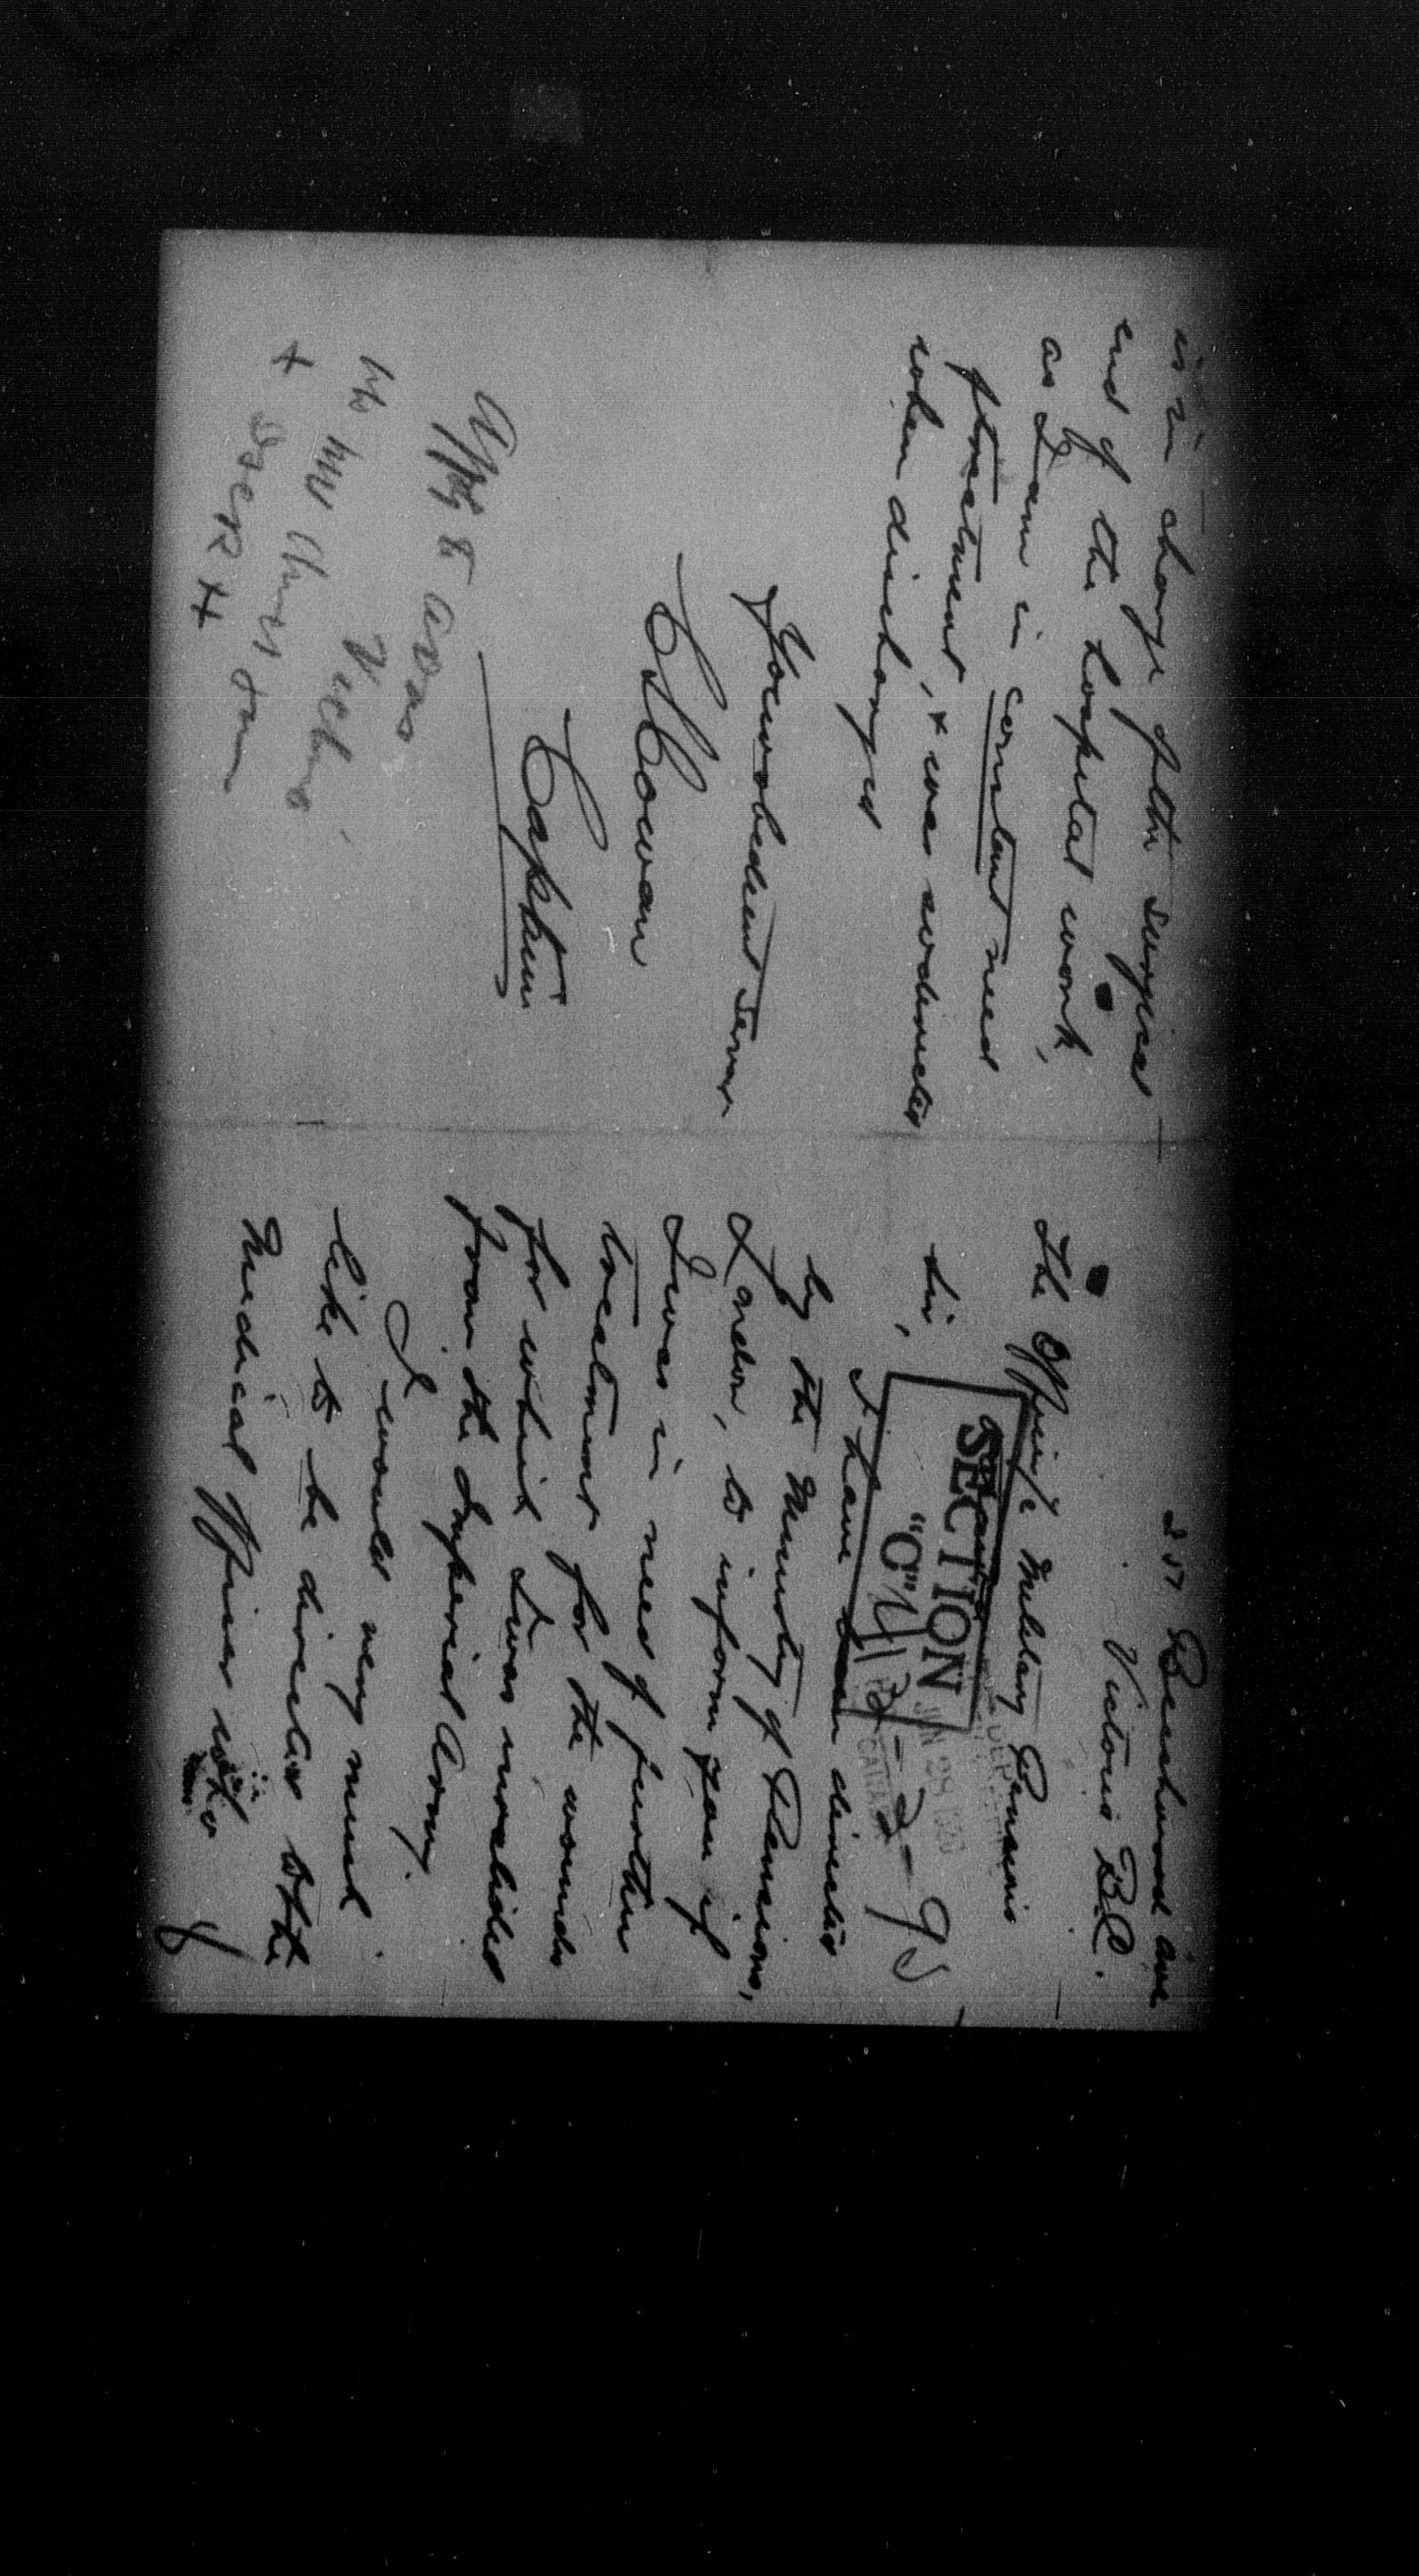 257 Beechwood Ave
Victoria B.C.
The Officer i/c Military Pensions
SECTION
"C"
JUN 28 1920
Sir,
I have been directed
by the Ministry of Pensions,
London, to inform you if
I was in need of further
treatment for the wounds
for which I was invalided
from the Imperial Army.
I would very much
like to be directed to the
Medical Officer who
is in charge of the surgical
end of the hospital work,
as I am in constant need
of treatment, + was instructed
when discharged
Your obedient Servant
Cowan
Captain